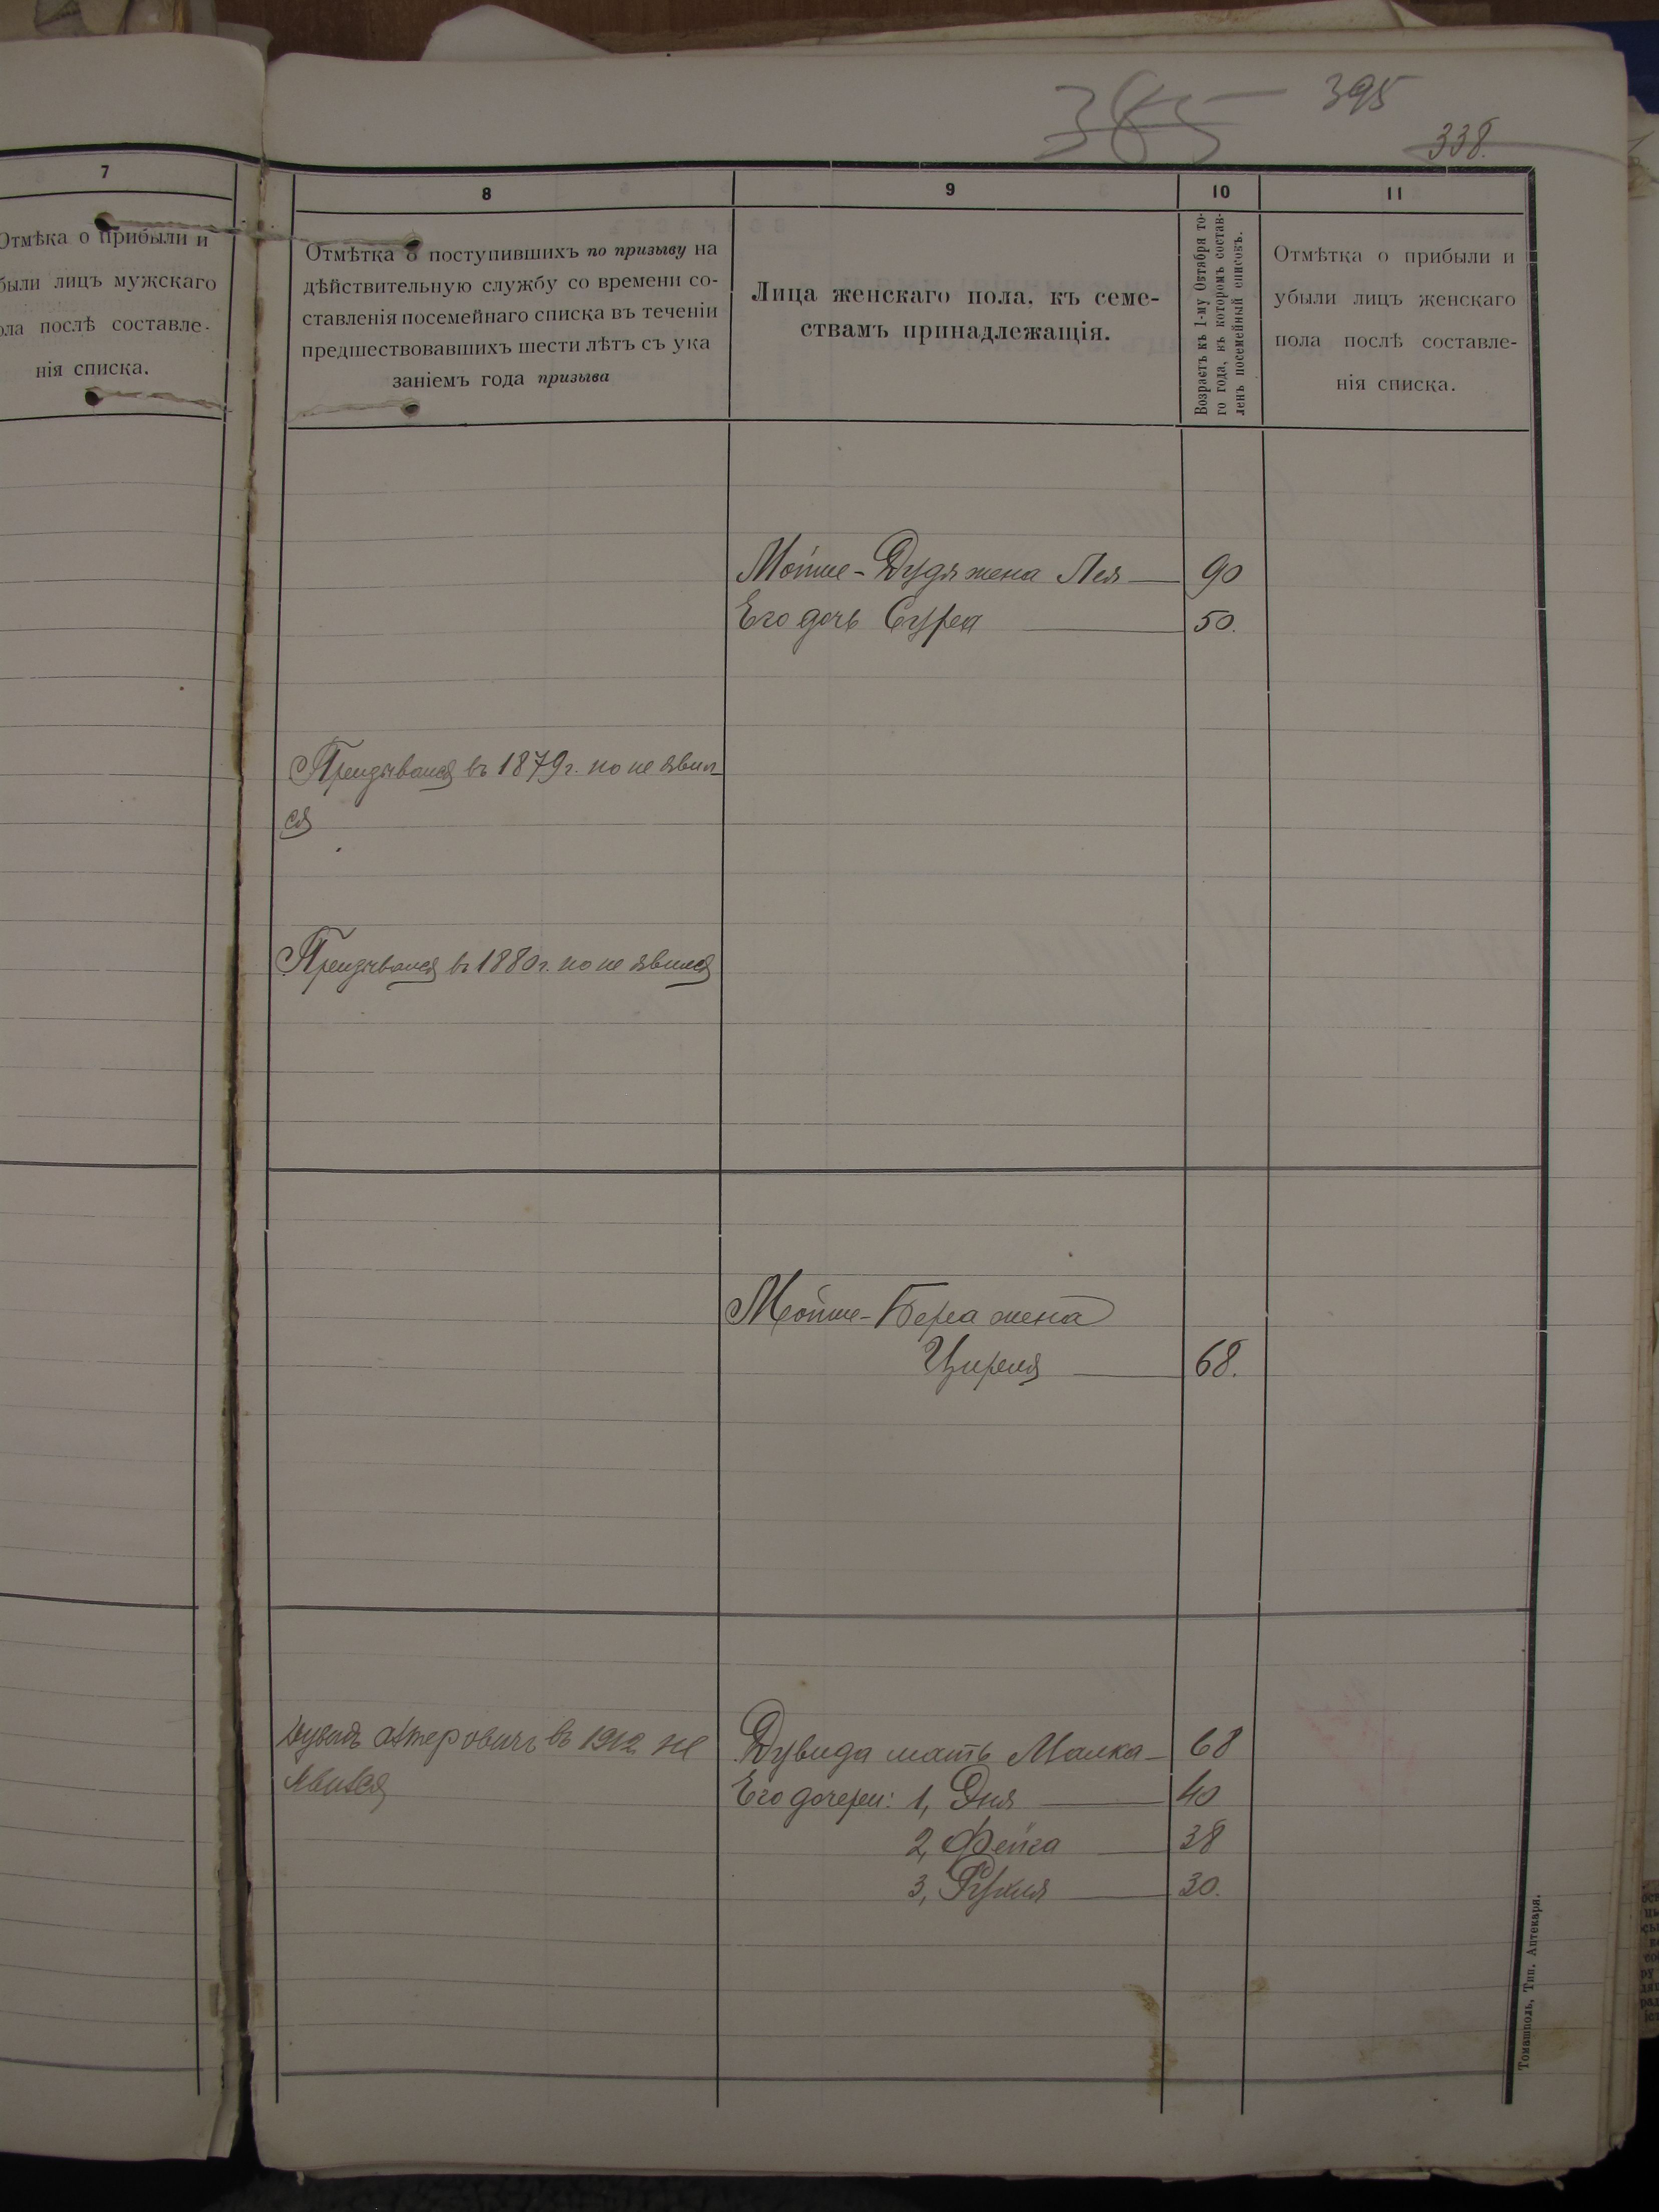 385 395
338.
7
Отмѣка о прибыли и
были лицъ мужскаго
ола послѣ составле-
нія списка.
8
Отмѣтка о поступившихъ по призыву на
дѣйствительную службу со времени со-
ставленія посемейнаго списка въ теченіи
предшествовавшихъ шести лѣтъ съ ука
заніемъ года призыва
9
Лица женскаго пола, къ семе-
ствамъ принадлежащія.
10
Возрастъ къ 1-му Октября то-
го года, въ которомъ состав-
ленъ посемейный списокъ.
11
Отмѣтка о прибыли и
убыли лицъ женскаго
пола послѣ составле-
нія списка.
Мотше-Дудя жена Лея 90
Его дочь Сура 50.
Призывался въ 1879 г. но не явил
ся
Призывался въ 1880 г. но не явился
Мошше-Бера жена
Циреля 68.
Дувидъ въ 1912 не
явился
Дувида мать Малка 68
Его дочери: 1, Эня 40
2, Фейга 38
3, Рухля 30.
Томашполь, Тип. Аптекаря.